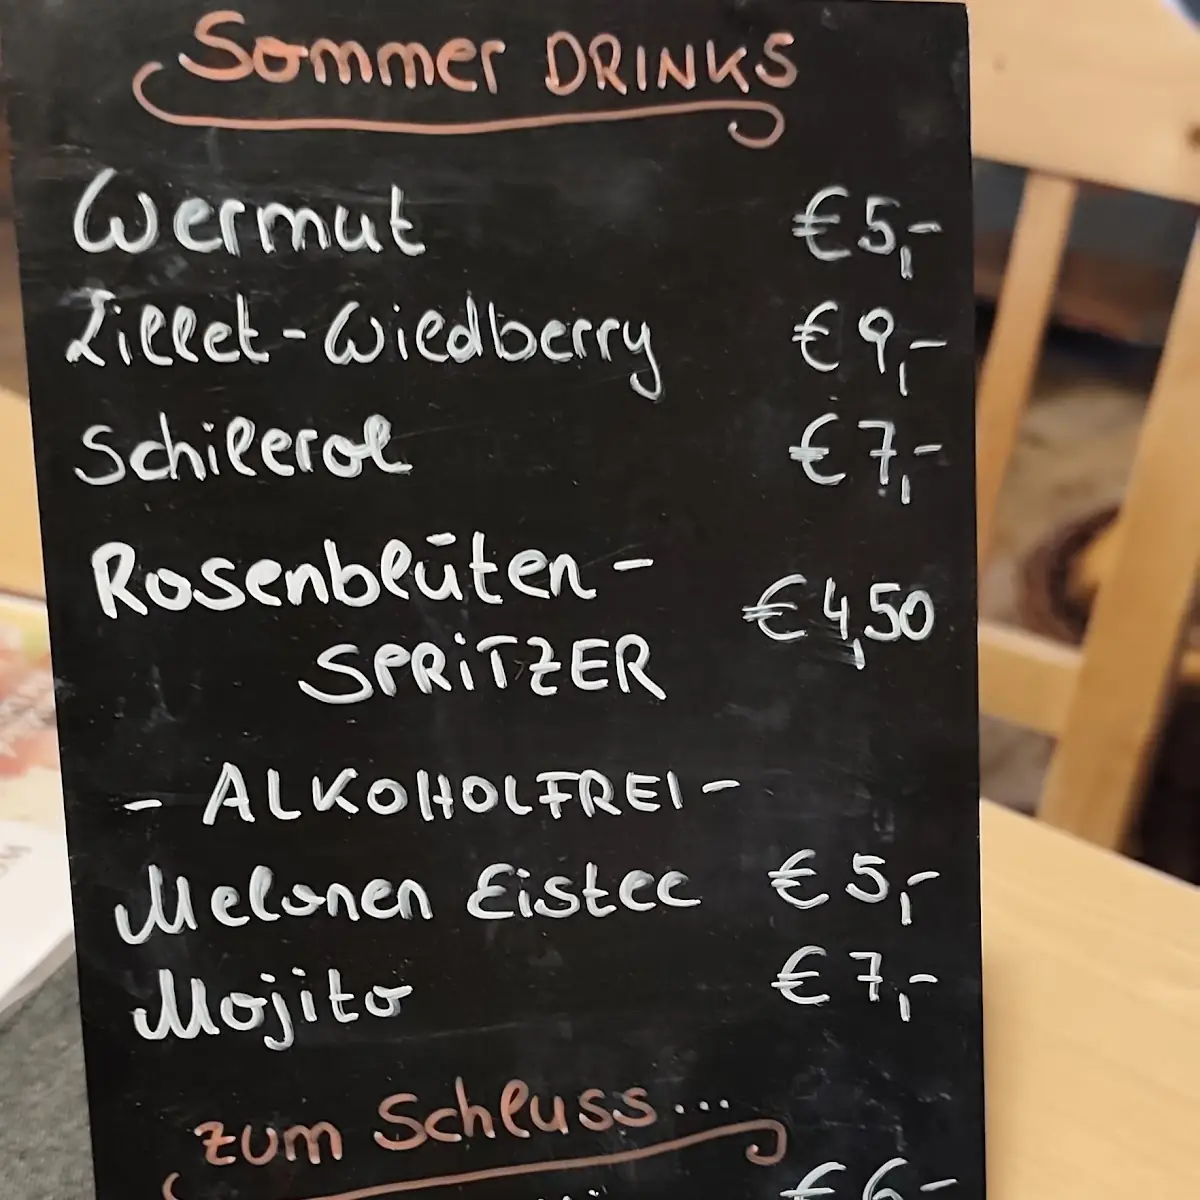 Sommer DRINKS
Wermut € 5,-
Lillet-Wildberry € 9,-
Schilerol € 7,-
Rosenblüten-
SPRiTZER € 4,50
- ALKOHOLFREI -
Melonen Eistee € 5,-
Mojito € 7,-
zum Schluss...
€ 6,-